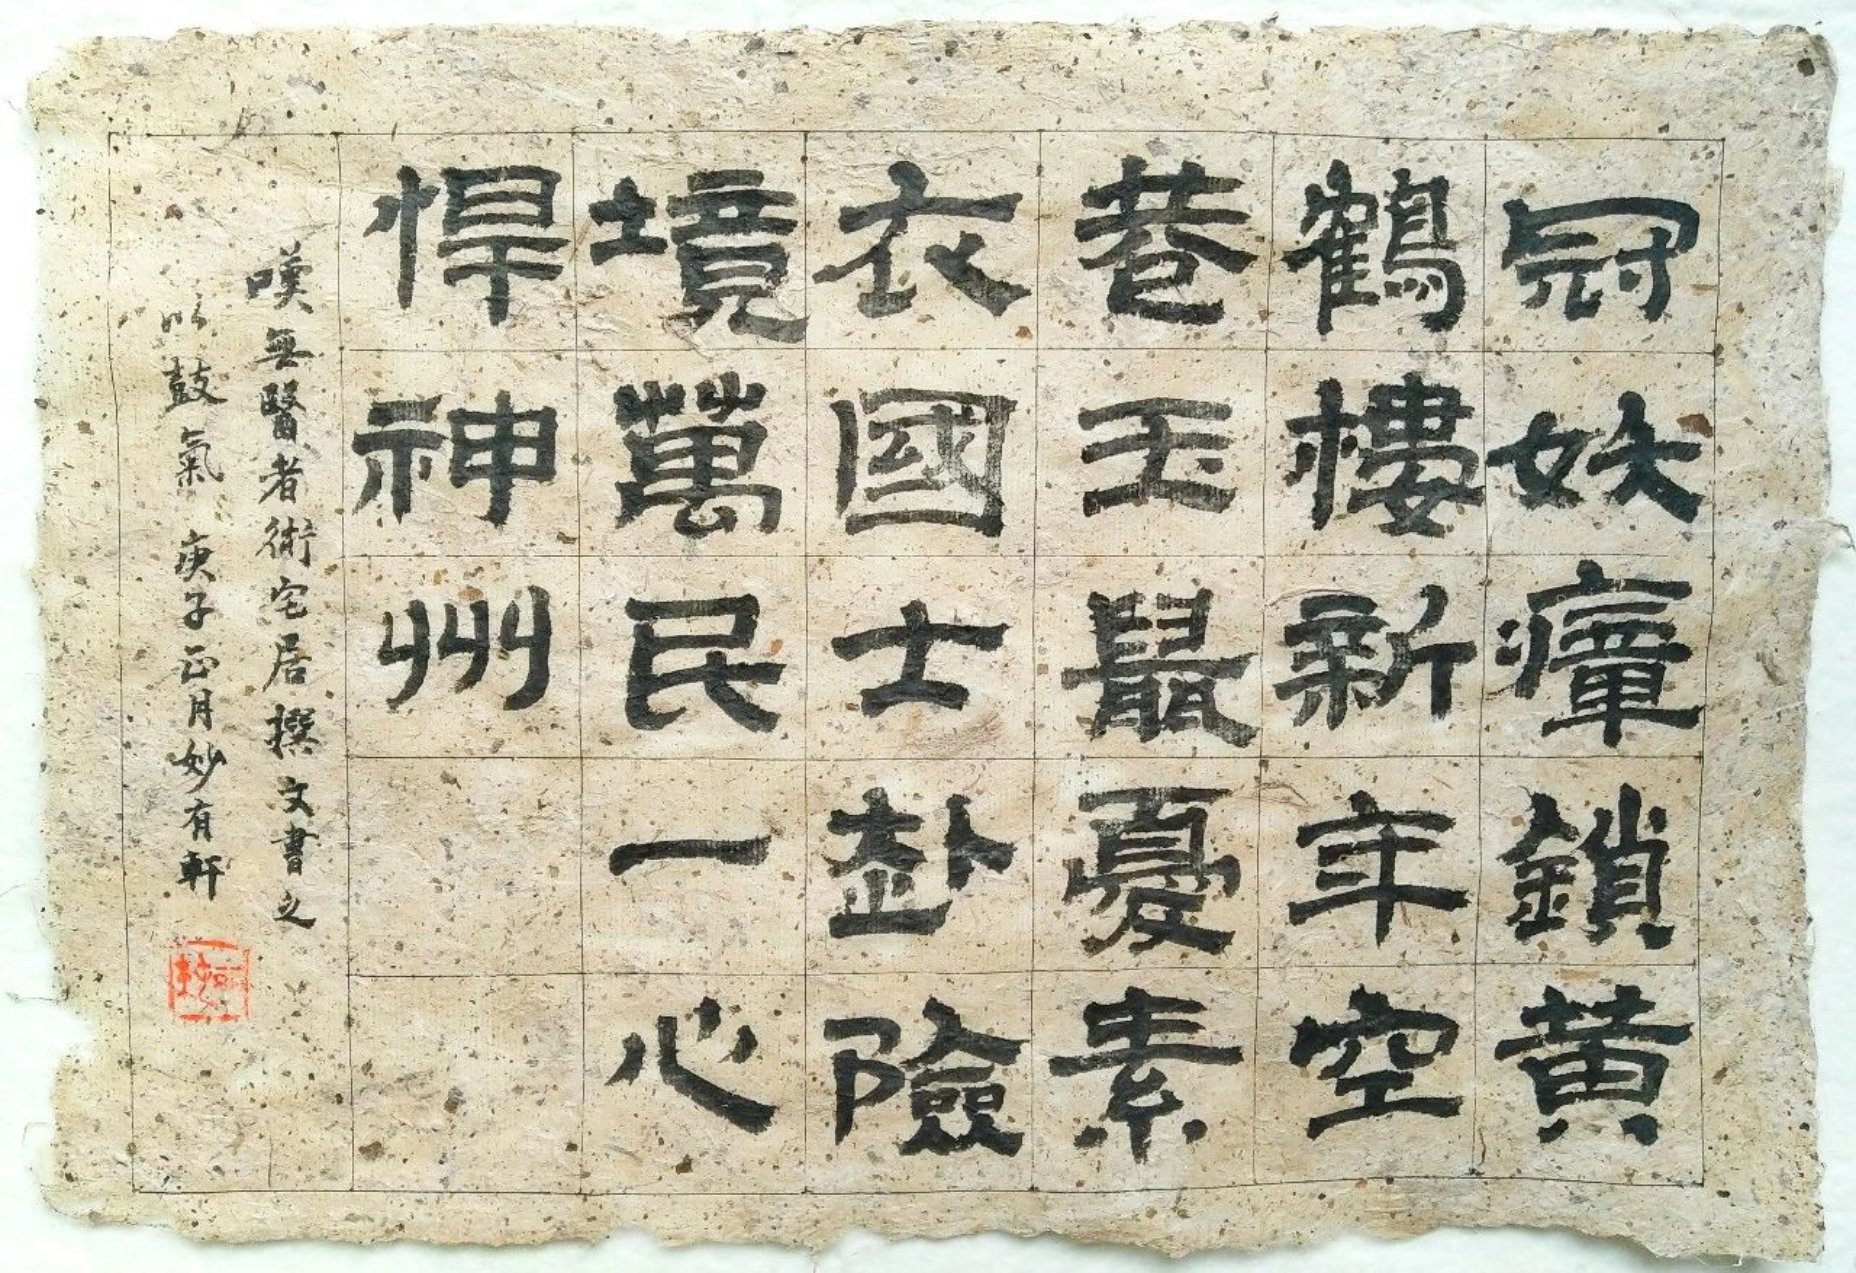 冠妖瘴鎖黄
鶴樓新年空
巷玉鼠憂素
衣國士赴險
境萬民一心
悍神州
嘆無醫者術宅居撰文書之
以鼓氣 庚子正月妙有軒